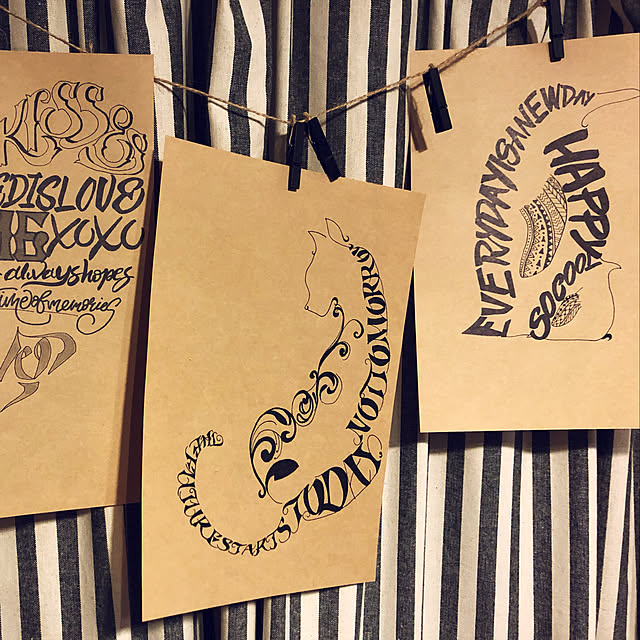 KISSES
EDISLOVE
ME XOXO
always hopes
time of memories
THE FUTURE STARTS TODAY NOT TOMORROW
EVERYDAY IS A NEW DAY
HAPPY
SO GOOD